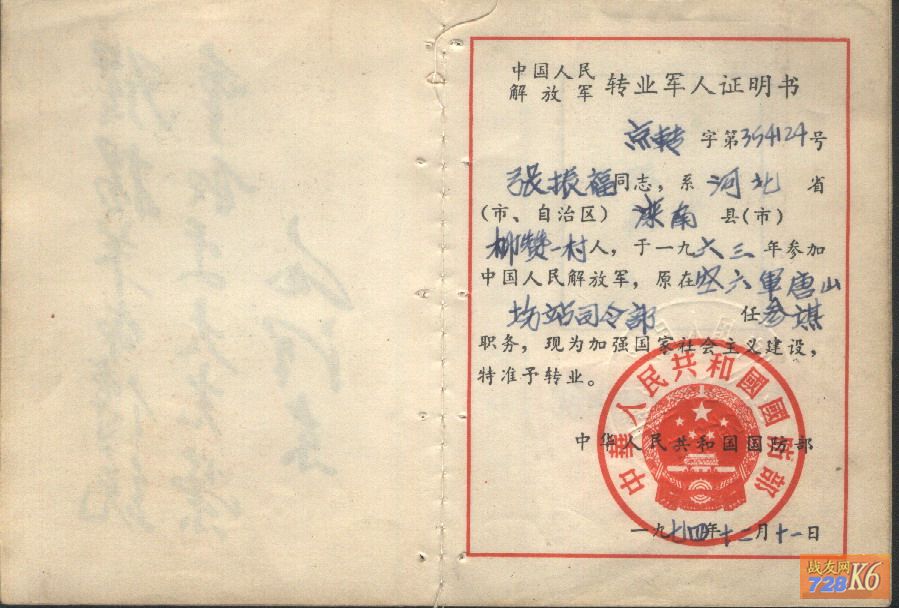 中国人民
解放军 转业军人证明书
点转 字第354124号
张振福同志，系 河北 省
（市、自治区） 滦南 县（市）
柳赞一村人，于一九六三年参加
中国人民解放军，原在空六軍唐山
场站司令部 任参谋
职务，现为加强国家社会主义建设，
特准予转业。
中華人民共和國國防部
中华人民共和国国防部
一九七四年十二月十一日
战友网
728 K6